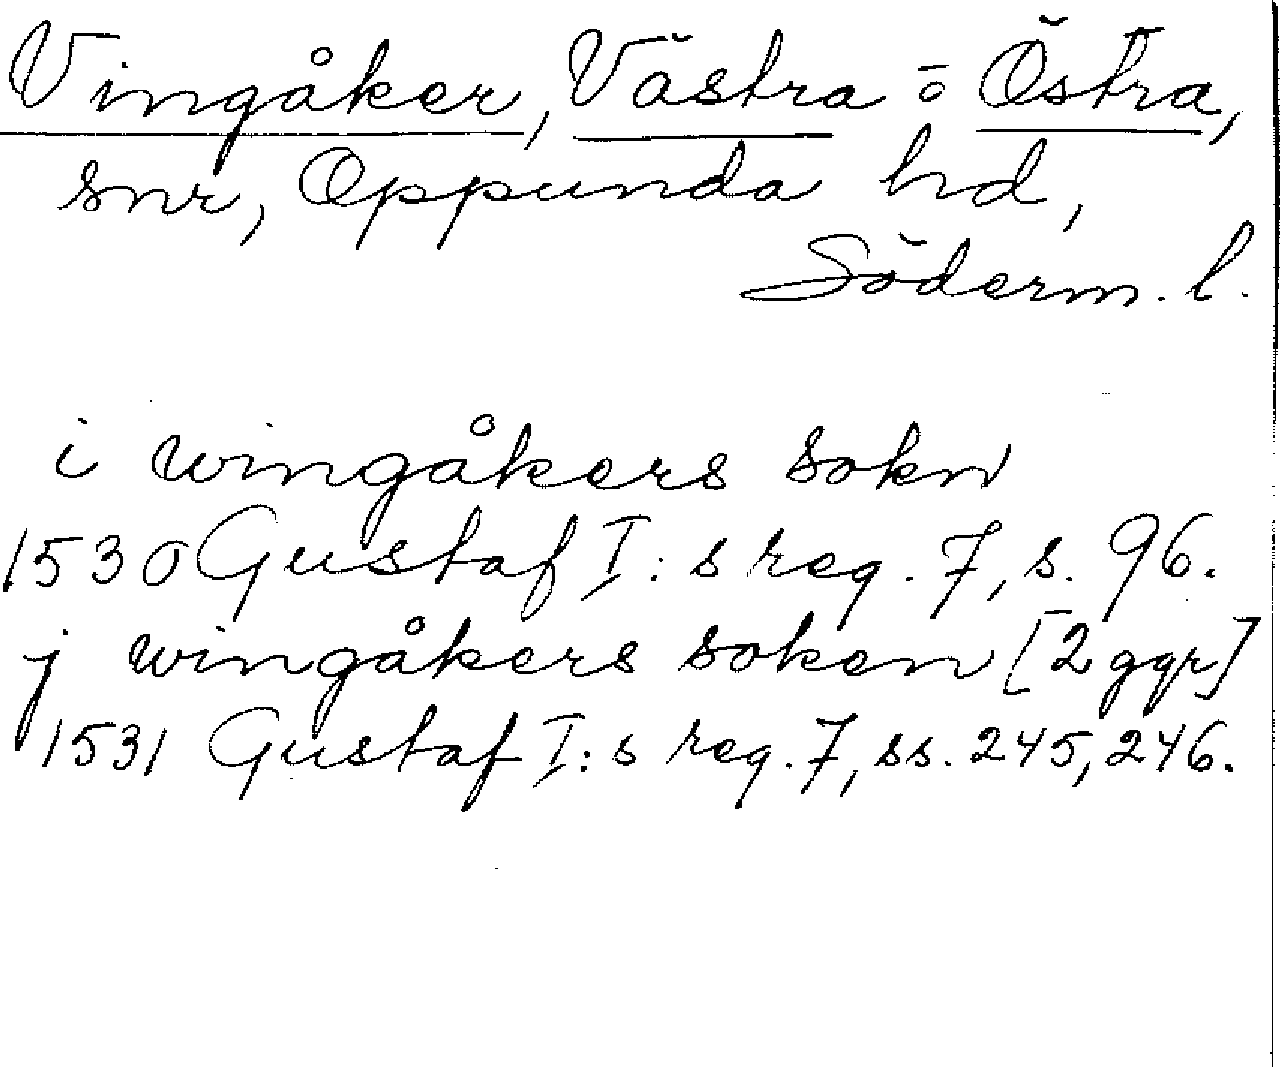 Vingåker, Västra o Östra,
snr, Oppunda hd,
Söderm. l.
i wingåkers sokn
1530 Gustaf I:s reg. 7, s. 96.
j wingåkers soken [2 ggr]
1531 Gustaf I:s reg. 7, ss. 245, 246.